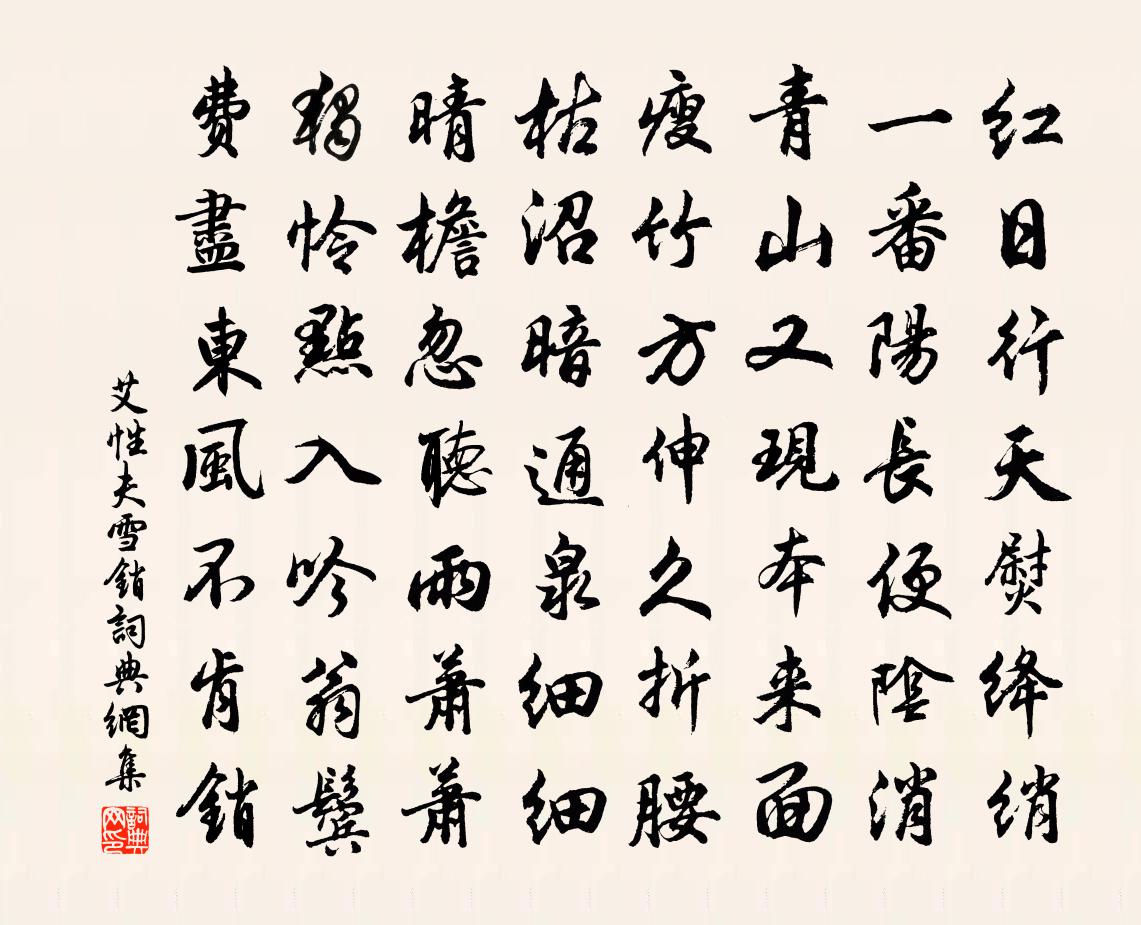 红日行天熨绛绡
一番陽長便陰消
青山又現本来面
瘦竹方伸久折腰
枯沼暗通泉细细
晴檐忽聽雨萧萧
獨怜點入吟翁鬓
費盡東風不肯銷
艾性夫雪銷詞典網集
詞典网印